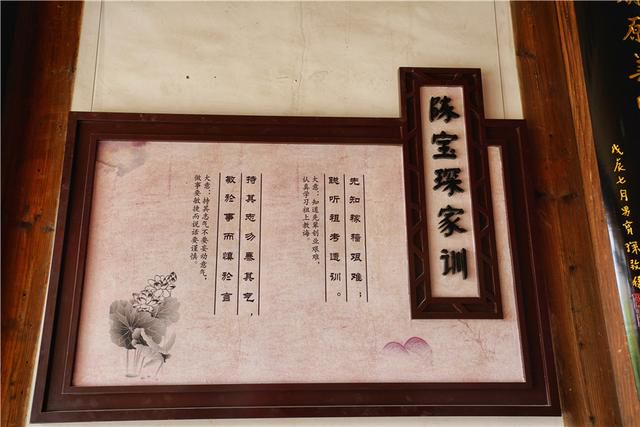 陈宝琛家训
先知稼穑艰难；
聪听祖考遗训。
大意：知道先辈创业艰难，
认真学习祖上教诲。
持其志勿暴其气，
敏於事而慎於言
大意：持其志气不要妄动意气，
做事要敏捷而说话要谨慎。
戊辰七月男